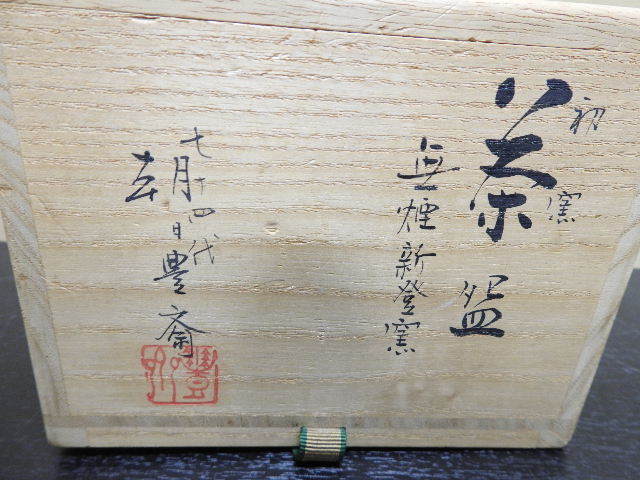 初窯
茶盌
無煙新登窯
七月
十四代
朝日豊斎